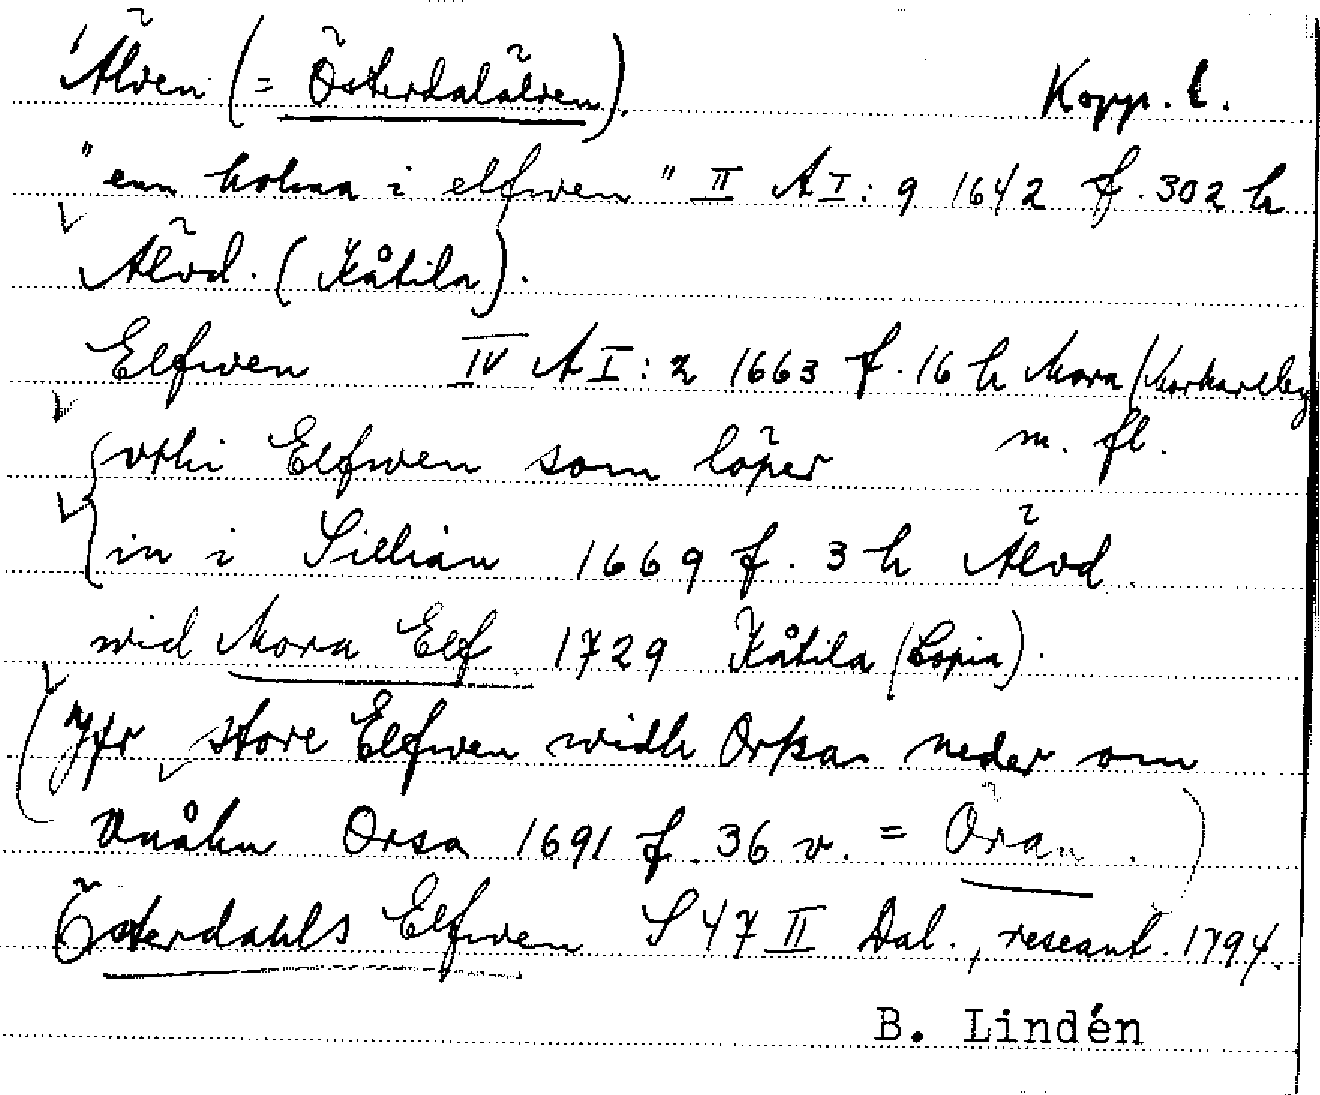 Älven (= Österdalälven). Kopp. l.
"enn holma i elfwen" II A I: 9 1642 f. 302 h
Älvd. (Kåtila).
Elfwen IV A I: 2 1663 f. 16 h Mora/Morkarlby
m. fl.
vthi Elfwen som löper
in i Sillian 1669 f. 3 h Älvd.
wid Mora Elf 1729 Kåtila (Copia).
(Jfr store Elfwen widh Orsa neder om
Vnåhn Orsa 1691 f. 36 v. = Öran.)
Österdahls Elfwen S 47 II Dal., reseant. 1794.
B. Lindén